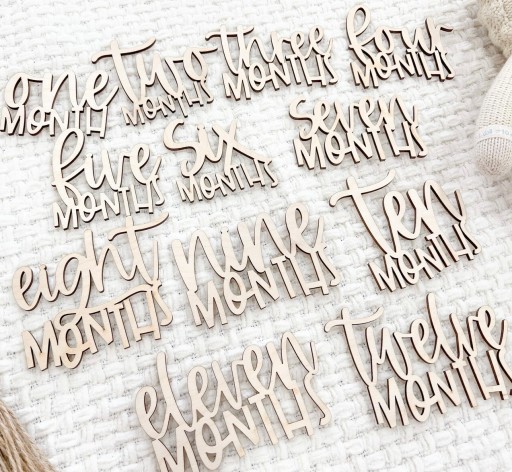 one
MONTH
two
MONTHS
three
MONTHS
four
MONTHS
five
MONTHS
six
MONTHS
seven
MONTHS
eight
MONTHS
nine
MONTHS
ten
MONTHS
eleven
MONTHS
twelve
MONTHS